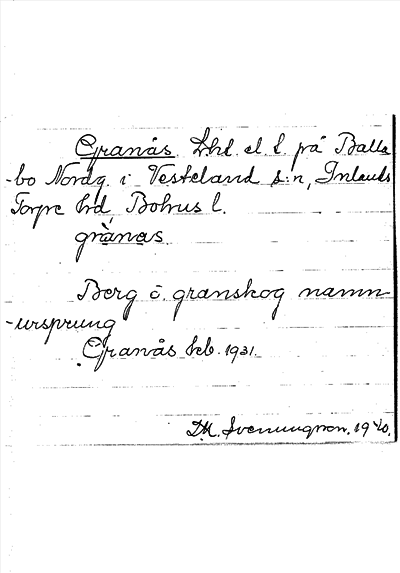 Granås. Lht el. l. på Balla
-bo Nordg. i Vesteland s:n, Inlands
Torpe hd, Bohus l.
grànas.
Berg o. granskog namn
-ursprung
Granås kb. 1931.
D.M. Svenungson. 1940.